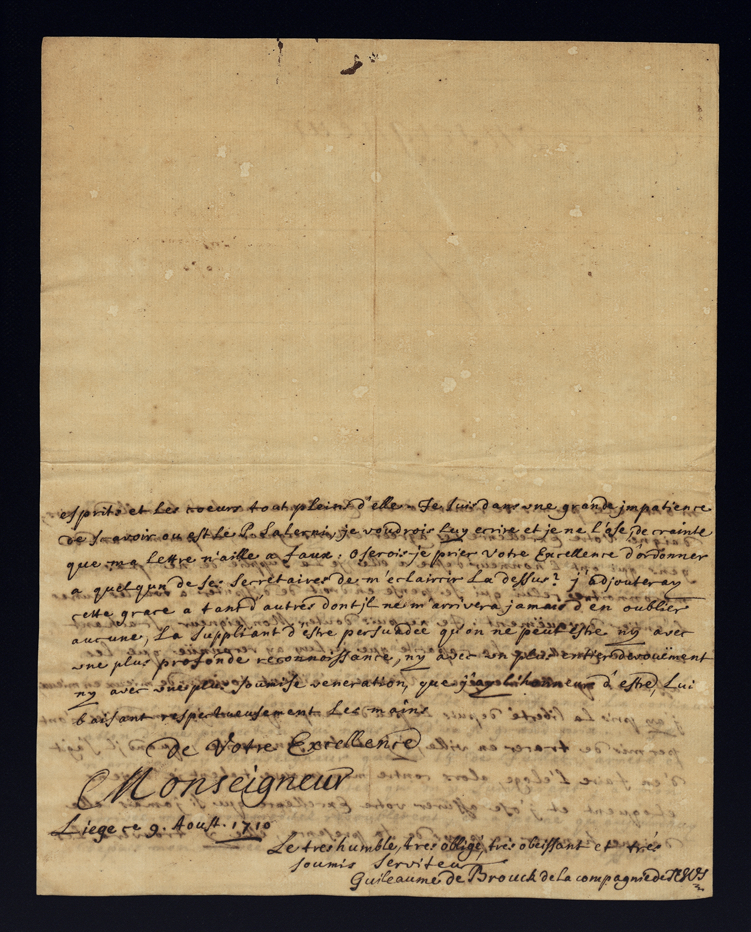 esprits et les coeurs tout pleins d'elle. Je suis dans une grande impatience
de sçavoir ou est le P. Salerni, je voudrois luy ecrire et je ne l'ose, de crainte
que ma lettre n'aille a faux: Oserois-je prier Votre Excellence d'ordonner
a quelqun de ses secretaires de m'eclaircir la dessus? j'adjouteray
cette grace a tant d'autres dont jl ne m'arrivera jamais d'en oublier
aucune, La suppliant d'estre persuadée qu'on ne peut estre ny avec
une plus profonde reconnoissance, ny avec un plus entier devouëment
ny avec une plus soumise veneration, que j'ay l'honneur d'estre, Lui
baisant respectueusement les mains
De Votre Excellence
Monseigneur
Liege ce 9. Aoust. 1710
Le tres humble, tres obligé, tres obeissant et trés
soumis Serviteur
Guileaume de Brouck de la compagnie de